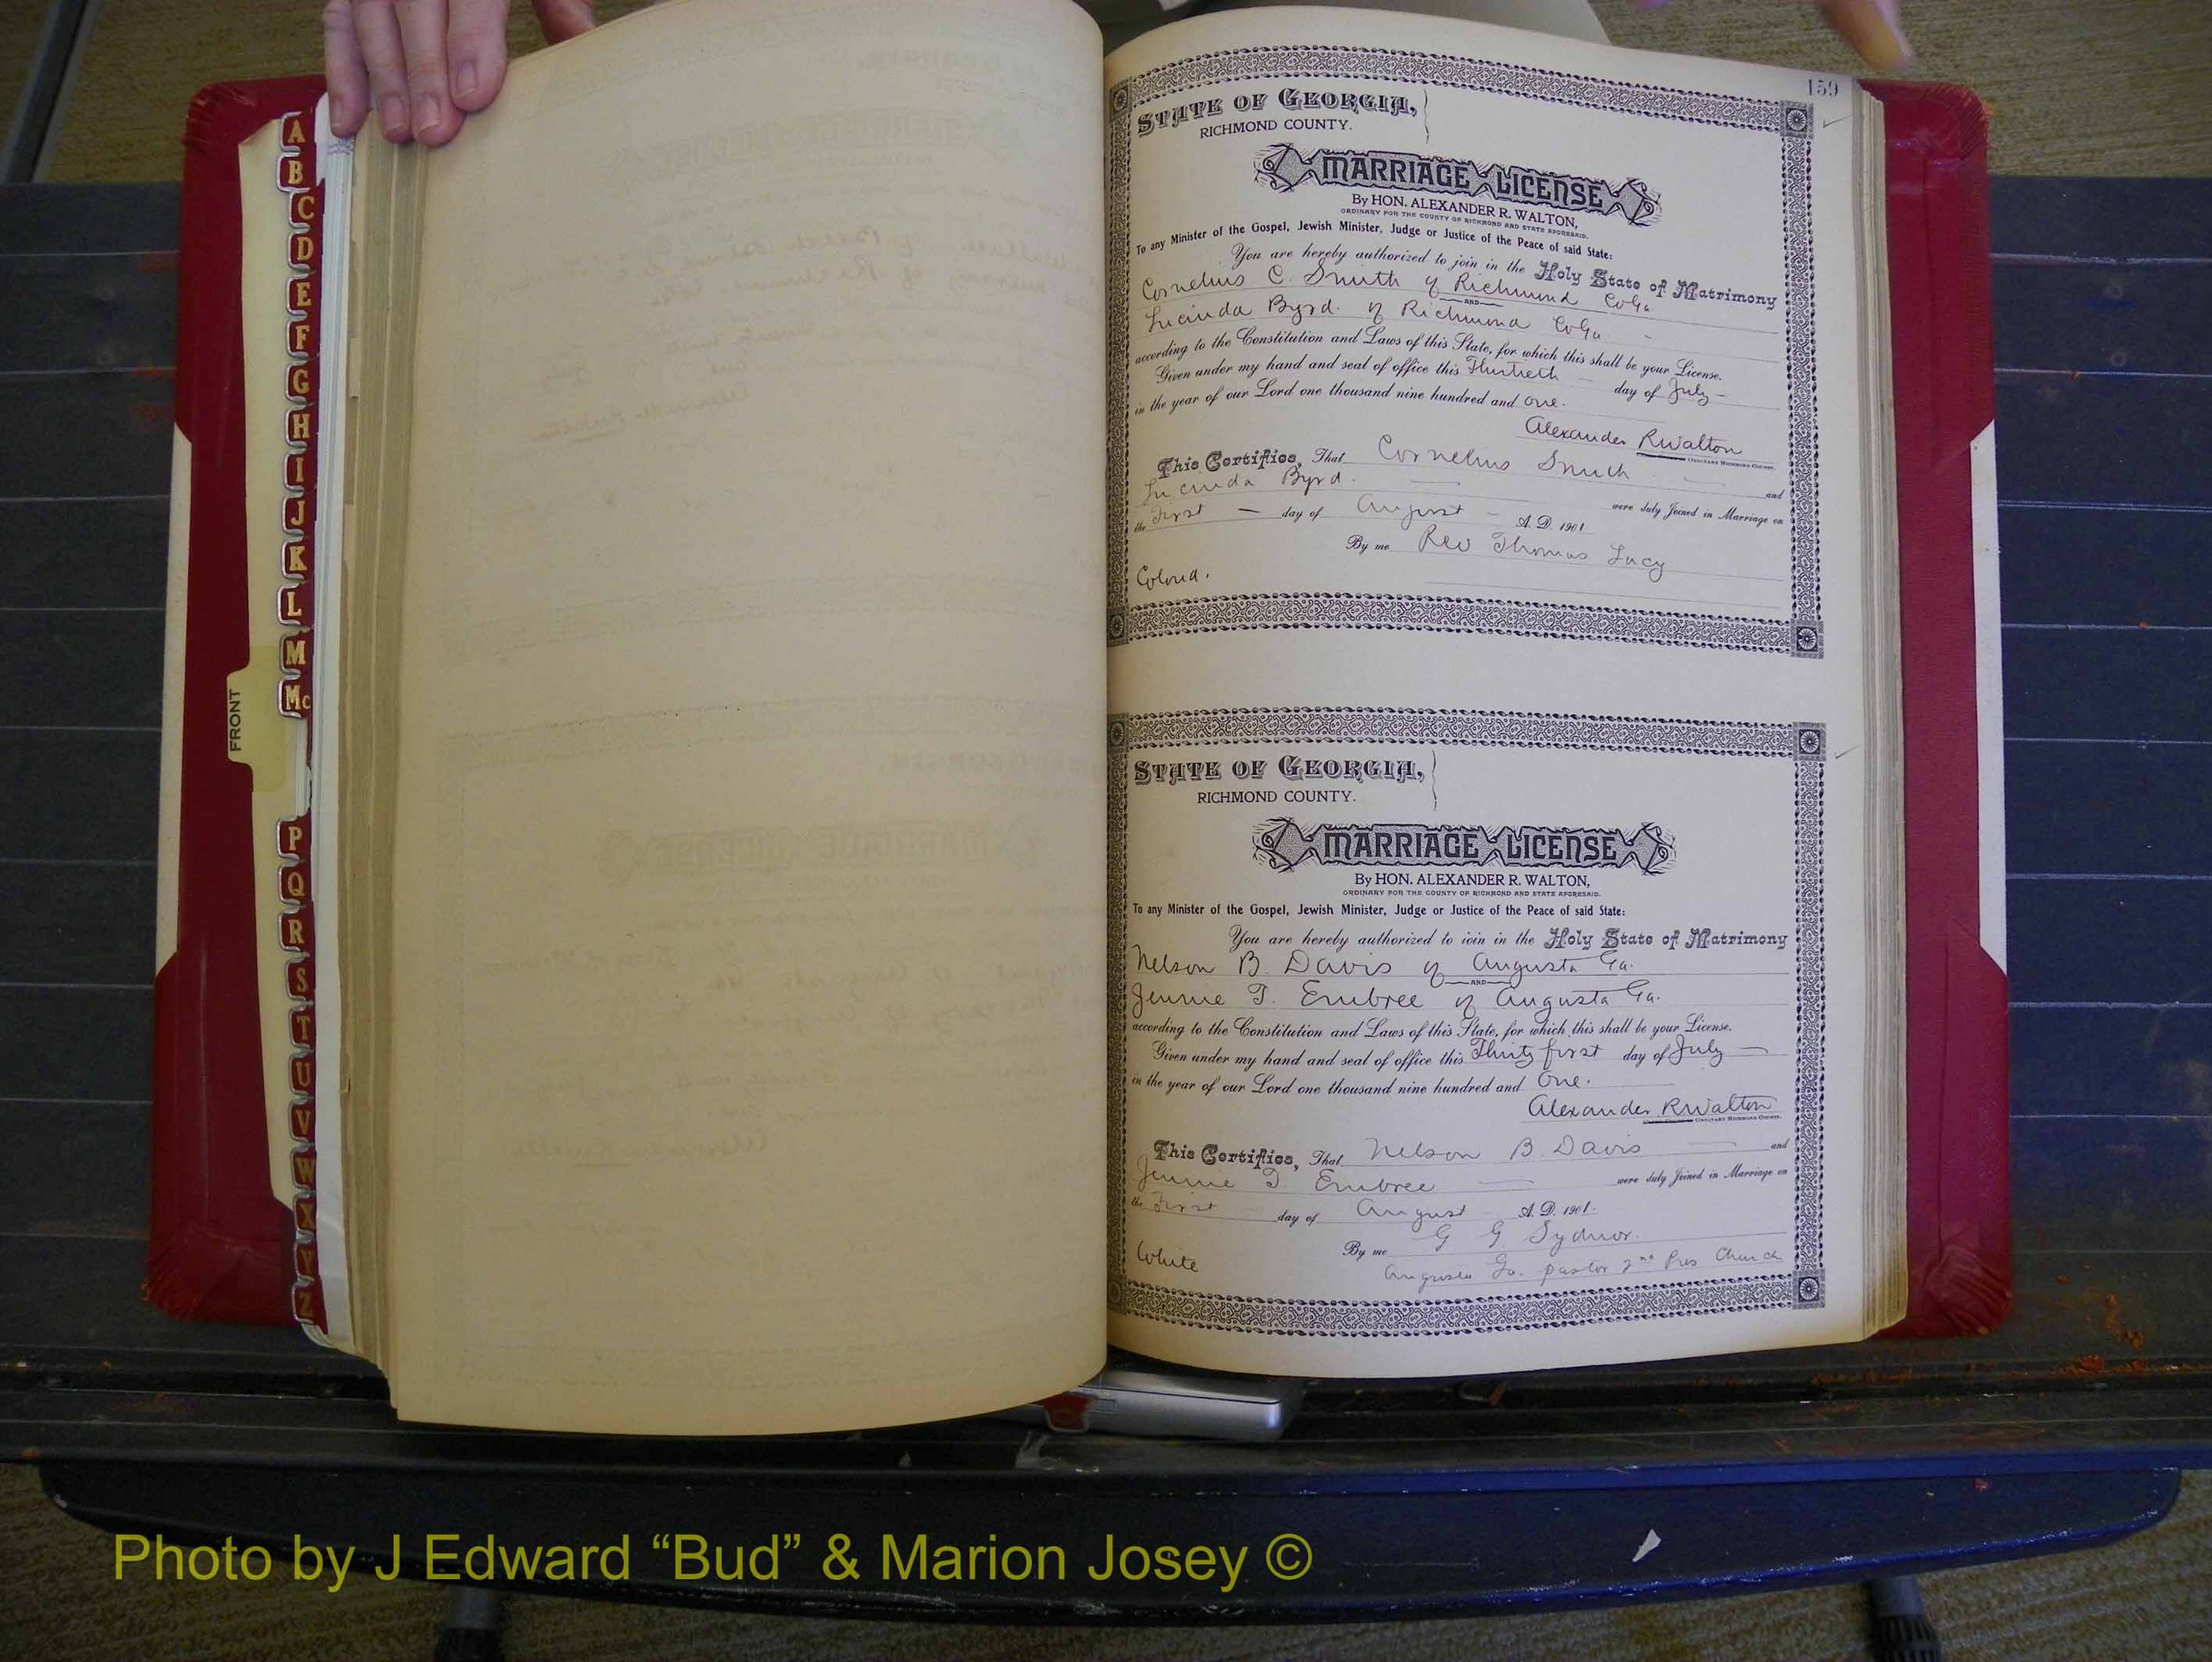 A
B
C
D
E
F
G
H
I
J
K
L
M
Mc
FRONT
P
Q
R
S
T
U
V
W
X
Y
Z
159
STATE OF GEORGIA,
RICHMOND COUNTY.
MARRIAGE LICENSE
By HON. ALEXANDER R. WALTON,
ORDINARY FOR THE COUNTY OF RICHMOND AND STATE AFORESAID.
To any Minister of the Gospel, Jewish Minister, Judge or Justice of the Peace of said State:
You are hereby authorized to join in the Holy State of Matrimony
Cornelius C. Smith of Richmond Co Ga
AND
Lucinda Byrd. of Richmond Co Ga
according to the Constitution and Laws of this State, for which this shall be your License.
Given under my hand and seal of office this Thirtieth day of July
in the year of our Lord one thousand nine hundred and One.
Alexander R Walton
ORDINARY RICHMOND COUNTY.
This Certifies, That Cornelius Smith and
Lucinda Byrd. were duly Joined in Marriage on
the First day of August A. D. 1901
By me Rev Thomas Lucy
Colord.
STATE OF GEORGIA,
RICHMOND COUNTY.
MARRIAGE LICENSE
By HON. ALEXANDER R. WALTON,
ORDINARY FOR THE COUNTY OF RICHMOND AND STATE AFORESAID.
To any Minister of the Gospel, Jewish Minister, Judge or Justice of the Peace of said State:
You are hereby authorized to join in the Holy State of Matrimony
Nelson B. Davis of Augusta Ga.
AND
Jennie T. Embree of Augusta Ga.
according to the Constitution and Laws of this State, for which this shall be your License.
Given under my hand and seal of office this Thirty first day of July
in the year of our Lord one thousand nine hundred and One.
Alexander R Walton
ORDINARY RICHMOND COUNTY.
This Certifies, That Nelson B. Davis and
Jennie T. Embree were duly Joined in Marriage on
the First day of August A. D. 1901.
By me G G Sydnor.
White Augusta Ga. pastor 2nd Pres Church
Photo by J Edward “Bud” & Marion Josey ©